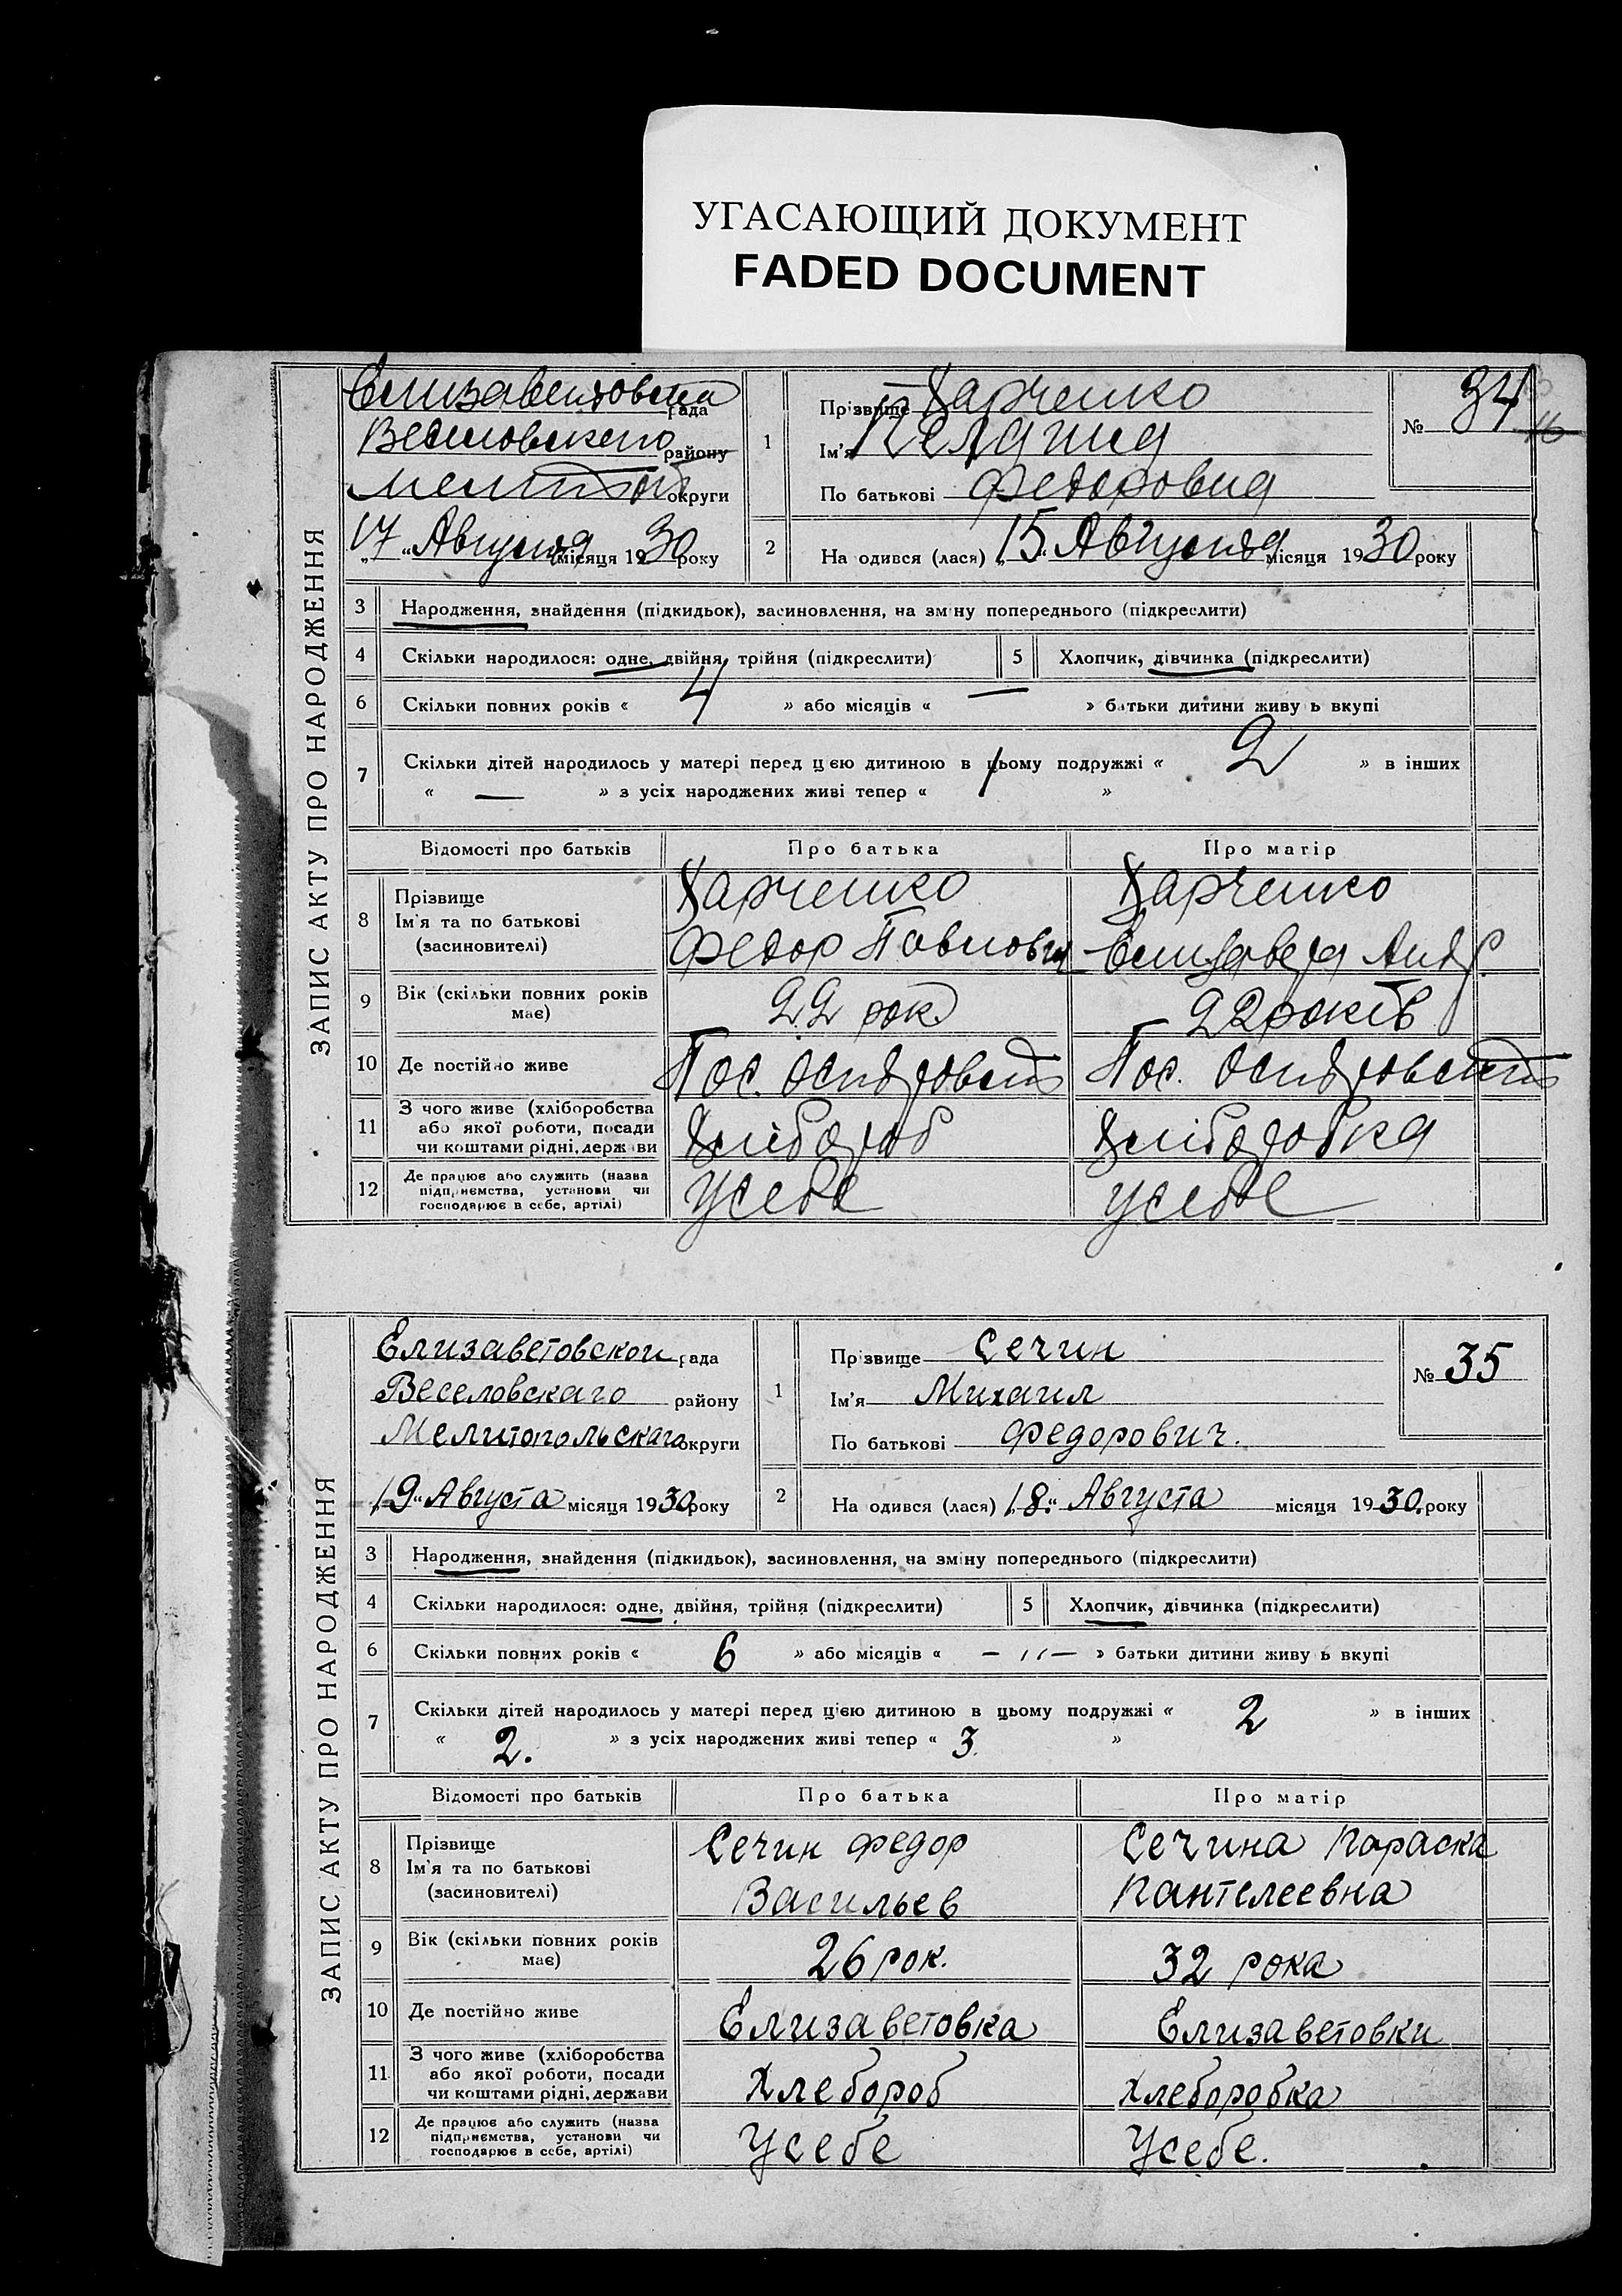 УГАСАЮЩИЙ ДОКУМЕНТ
FADED DOCUMENT
ЗАПИС АКТУ ПРО НАРОДЖЕННЯ
Елизаветовска рада
Веселовского району
Мелитоп округи
„17“ Августа місяця 1930 року
1
Прізвище Харченко
Ім'я Келагия
По батькові Федоровна
№ 34
16
2
На одився (лася) „15“ Августа місяця 1930 року
3 Народження, знайдення (підкидьок), засиновлення, на зміну попереднього (підкреслити)
4 Скільки народилося: одне, двійня, трійня (підкреслити) 5 Хлопчик, дівчинка (підкреслити)
6 Скільки повних років « 4 » або місяців « — » батьки дитини живу ь вкупі
7 Скільки дітей народилось у матері перед цією дитиною в цьому подружжі « 2 » в інших
« — » з усіх народжених живі тепер « 1 »
Відомості про батьків Про батька Про матір
8 Прізвище
Ім'я та по батькові
(засиновителі)
Харченко
Федор Павлович
Харченко
Елизавета Андр.
9 Вік (скільки повних років має) 22 рок. 22 років
10 Де постійно живе Пос. Пос.
11 З чого живе (хліборобства
або якої роботи, посади
чи коштами рідні, держави
Хлібороб Хліборобка
12 Де працює або служить (назва
підприємства, установи чи
господарює в себе, артілі)
Усебе Усебе
ЗАПИС АКТУ ПРО НАРОДЖЕННЯ
Елизаветовской рада
Веселовскаго району
Мелитопольскаго округи
„19“ Августа місяця 1930 року
1
Прізвище Сечин
Ім'я Михаил
По батькові Федорович.
№ 35
2
На одився (лася) „18.“ Августа місяця 1930. року
3 Народження, знайдення (підкидьок), засиновлення, на зміну попереднього (підкреслити)
4 Скільки народилося: одне, двійня, трійня (підкреслити) 5 Хлопчик, дівчинка (підкреслити)
6 Скільки повних років « 6 » або місяців « —〃 — » батьки дитини живу ь вкупі
7 Скільки дітей народилось у матері перед цією дитиною в цьому подружжі « 2 » в інших
« 2. » з усіх народжених живі тепер « 3. »
Відомості про батьків Про батька Про матір
8 Прізвище
Ім'я та по батькові
(засиновителі)
Сечин Федор
Васильев
Сечина Параска
Пантелеевна
9 Вік (скільки повних років має) 26 рок. 32 рока
10 Де постійно живе Елизаветовка Елизаветовки
11 З чого живе (хліборобства
або якої роботи, посади
чи коштами рідні, держави
Хлебороб Хлеборобка
12 Де працює або служить (назва
підприємства, установи чи
господарює в себе, артілі)
Усебе Усебе.